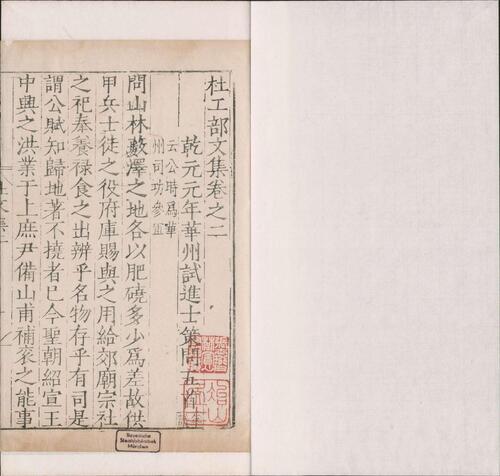 杜工部文集卷之二
乾元元年華州試進士策問五首
云公時爲華
州司功參軍
問山林藪澤之地各以肥磽多少爲差故供
甲兵士徒之役府庫賜與之用給郊廟宗社
之祀奉養祿食之出辨乎名物存乎有司是
謂公賦知歸地著不撓者已今聖朝紹宣王
中興之洪業于上庶尹備山甫補袞之能事
Bayerische
Staatsbibliothek
München